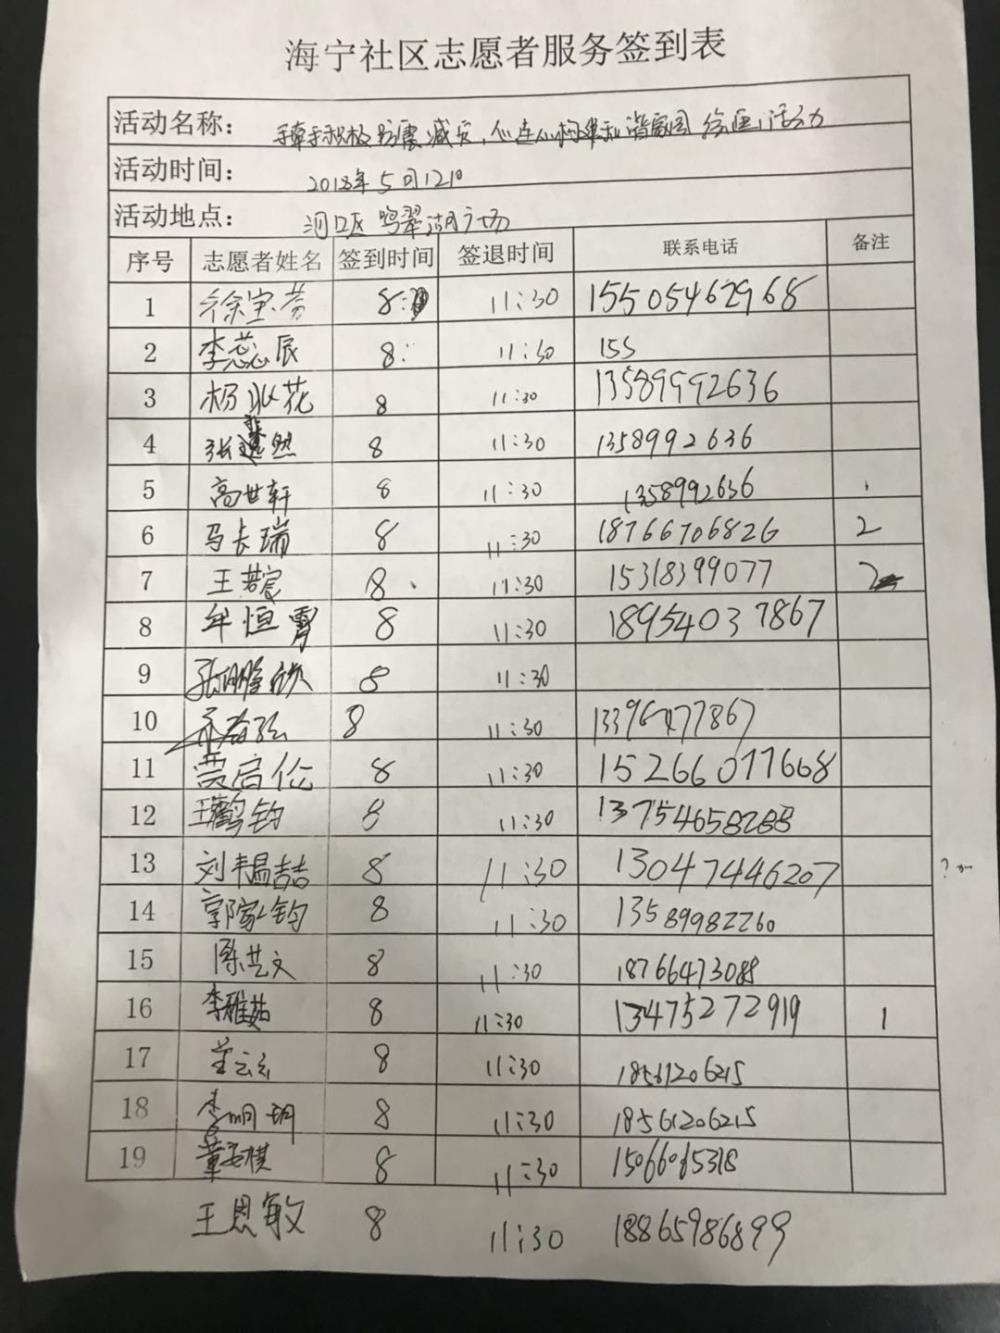 海宁社区志愿者服务签到表
活动名称： 手牵手积极防震减灾，心连心构建和谐家园 绘画活动
活动时间： 2018年5月12日
活动地点： 河口区 鸣翠湖广场
序号 志愿者姓名 签到时间 签退时间 联系电话 备注
1 徐宝芳 8: 11:30 15505462968
2 李蕊辰 8: 11:30 155
3 杨 花 8 11:30 13589992636
4 张 然 8 11:30 1358992636
5 高世轩 8 11:30 1358992636
6 马长瑞 8 11:30 18766706826 2
7 王若 8 11:30 15318399077 2
8 牟恒霄 8 11:30 18954037867
9 张鹏欣 8 11:30
10 8 11:30 13396477867
11 贾启伦 8 11:30 15266077668
12 王鹤钧 8 11:30 13754658288
13 刘韫喆 8 11:30 13047446207 ?
14 郭家钧 8 11:30 13589982260
15 陈艺文 8 11:30 18766473088
16 李雅茹 8 11:30 13475272919 1
17 8 11:30 18561206215
18 李明玥 8 11:30 18561206215
19 董安棋 8 11:30 15066065318
王恩敏 8 11:30 18865986899